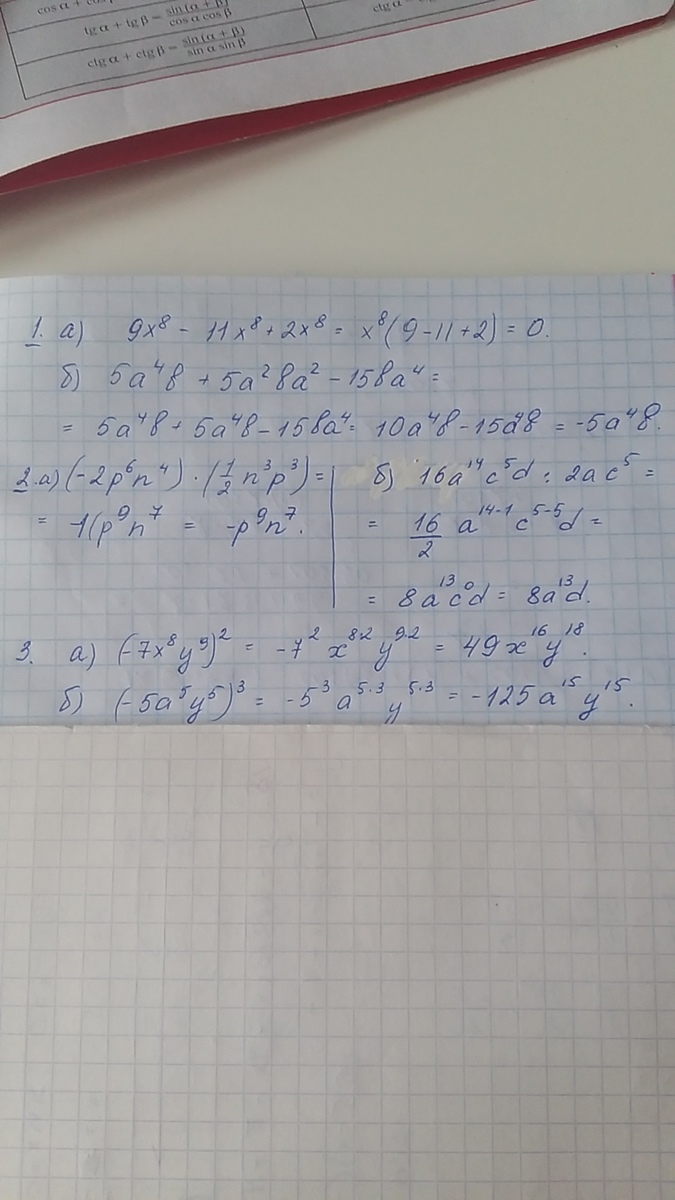 cos α + cos β
tg α + tg β = sin (α + β) / cos α cos β
ctg α + ctg β = sin (α + β) / sin α sin β
ctg α −
1. а) 9x⁸ − 11x⁸ + 2x⁸ = x⁸(9−11+2) = 0.
б) 5a⁴b + 5a²ba² − 15ba⁴ =
= 5a⁴b + 5a⁴b − 15ba⁴ = 10a⁴b − 15a⁴b = −5a⁴b.
2. а) (−2p⁶n⁴) · (1/2 n³p³) =
= −1(p⁹n⁷ = −p⁹n⁷.
б) 16a¹⁴c⁵d : 2ac⁵ =
= 16/2 a¹⁴⁻¹ c⁵⁻⁵d =
= 8a¹³c⁰d = 8a¹³d.
3. а) (−7x⁸y⁹)² = −7² x⁸·² y⁹·² = 49x¹⁶y¹⁸.
б) (−5a⁵y⁵)³ = −5³ a⁵·³ y⁵·³ = −125a¹⁵y¹⁵.